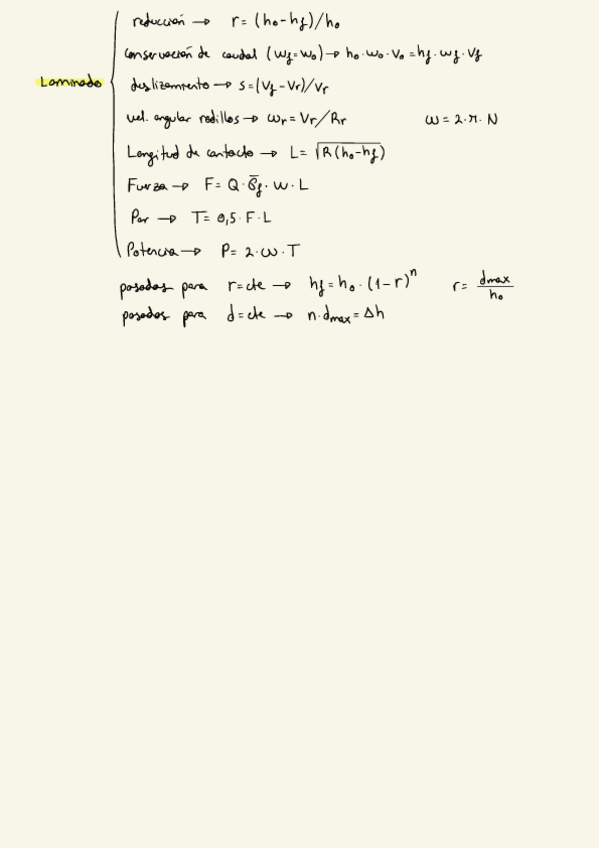 reducción → r = (h₀-h_f)/h₀
conservación de caudal (w_f=w₀) → h₀·w₀·v₀ = h_f·w_f·v_f
Laminado
deslizamiento → s=(V_f-Vr)/Vr
vel. angular rodillos → ωr = Vr/Rr ω = 2·π·N
Longitud de contacto → L = √(R(h₀-h_f))
Fuerza → F = Q·σ̄_f·w·L
Par → T = 0,5·F·L
Potencia → P = 2·ω·T
pasadas para r=cte → h_f = h₀·(1-r)ⁿ r = dmax/h₀
pasadas para d=cte → n·dmax = Δh